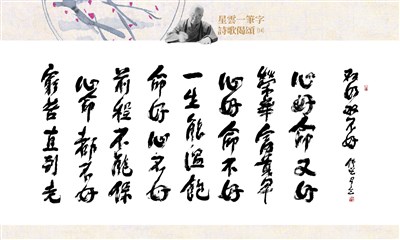 星雲一筆字
詩歌偈頌
心好命又好
榮華富貴早
心好命不好
一生能溫飽
命好心不好
前程不能保
心命都不好
窮苦直到老